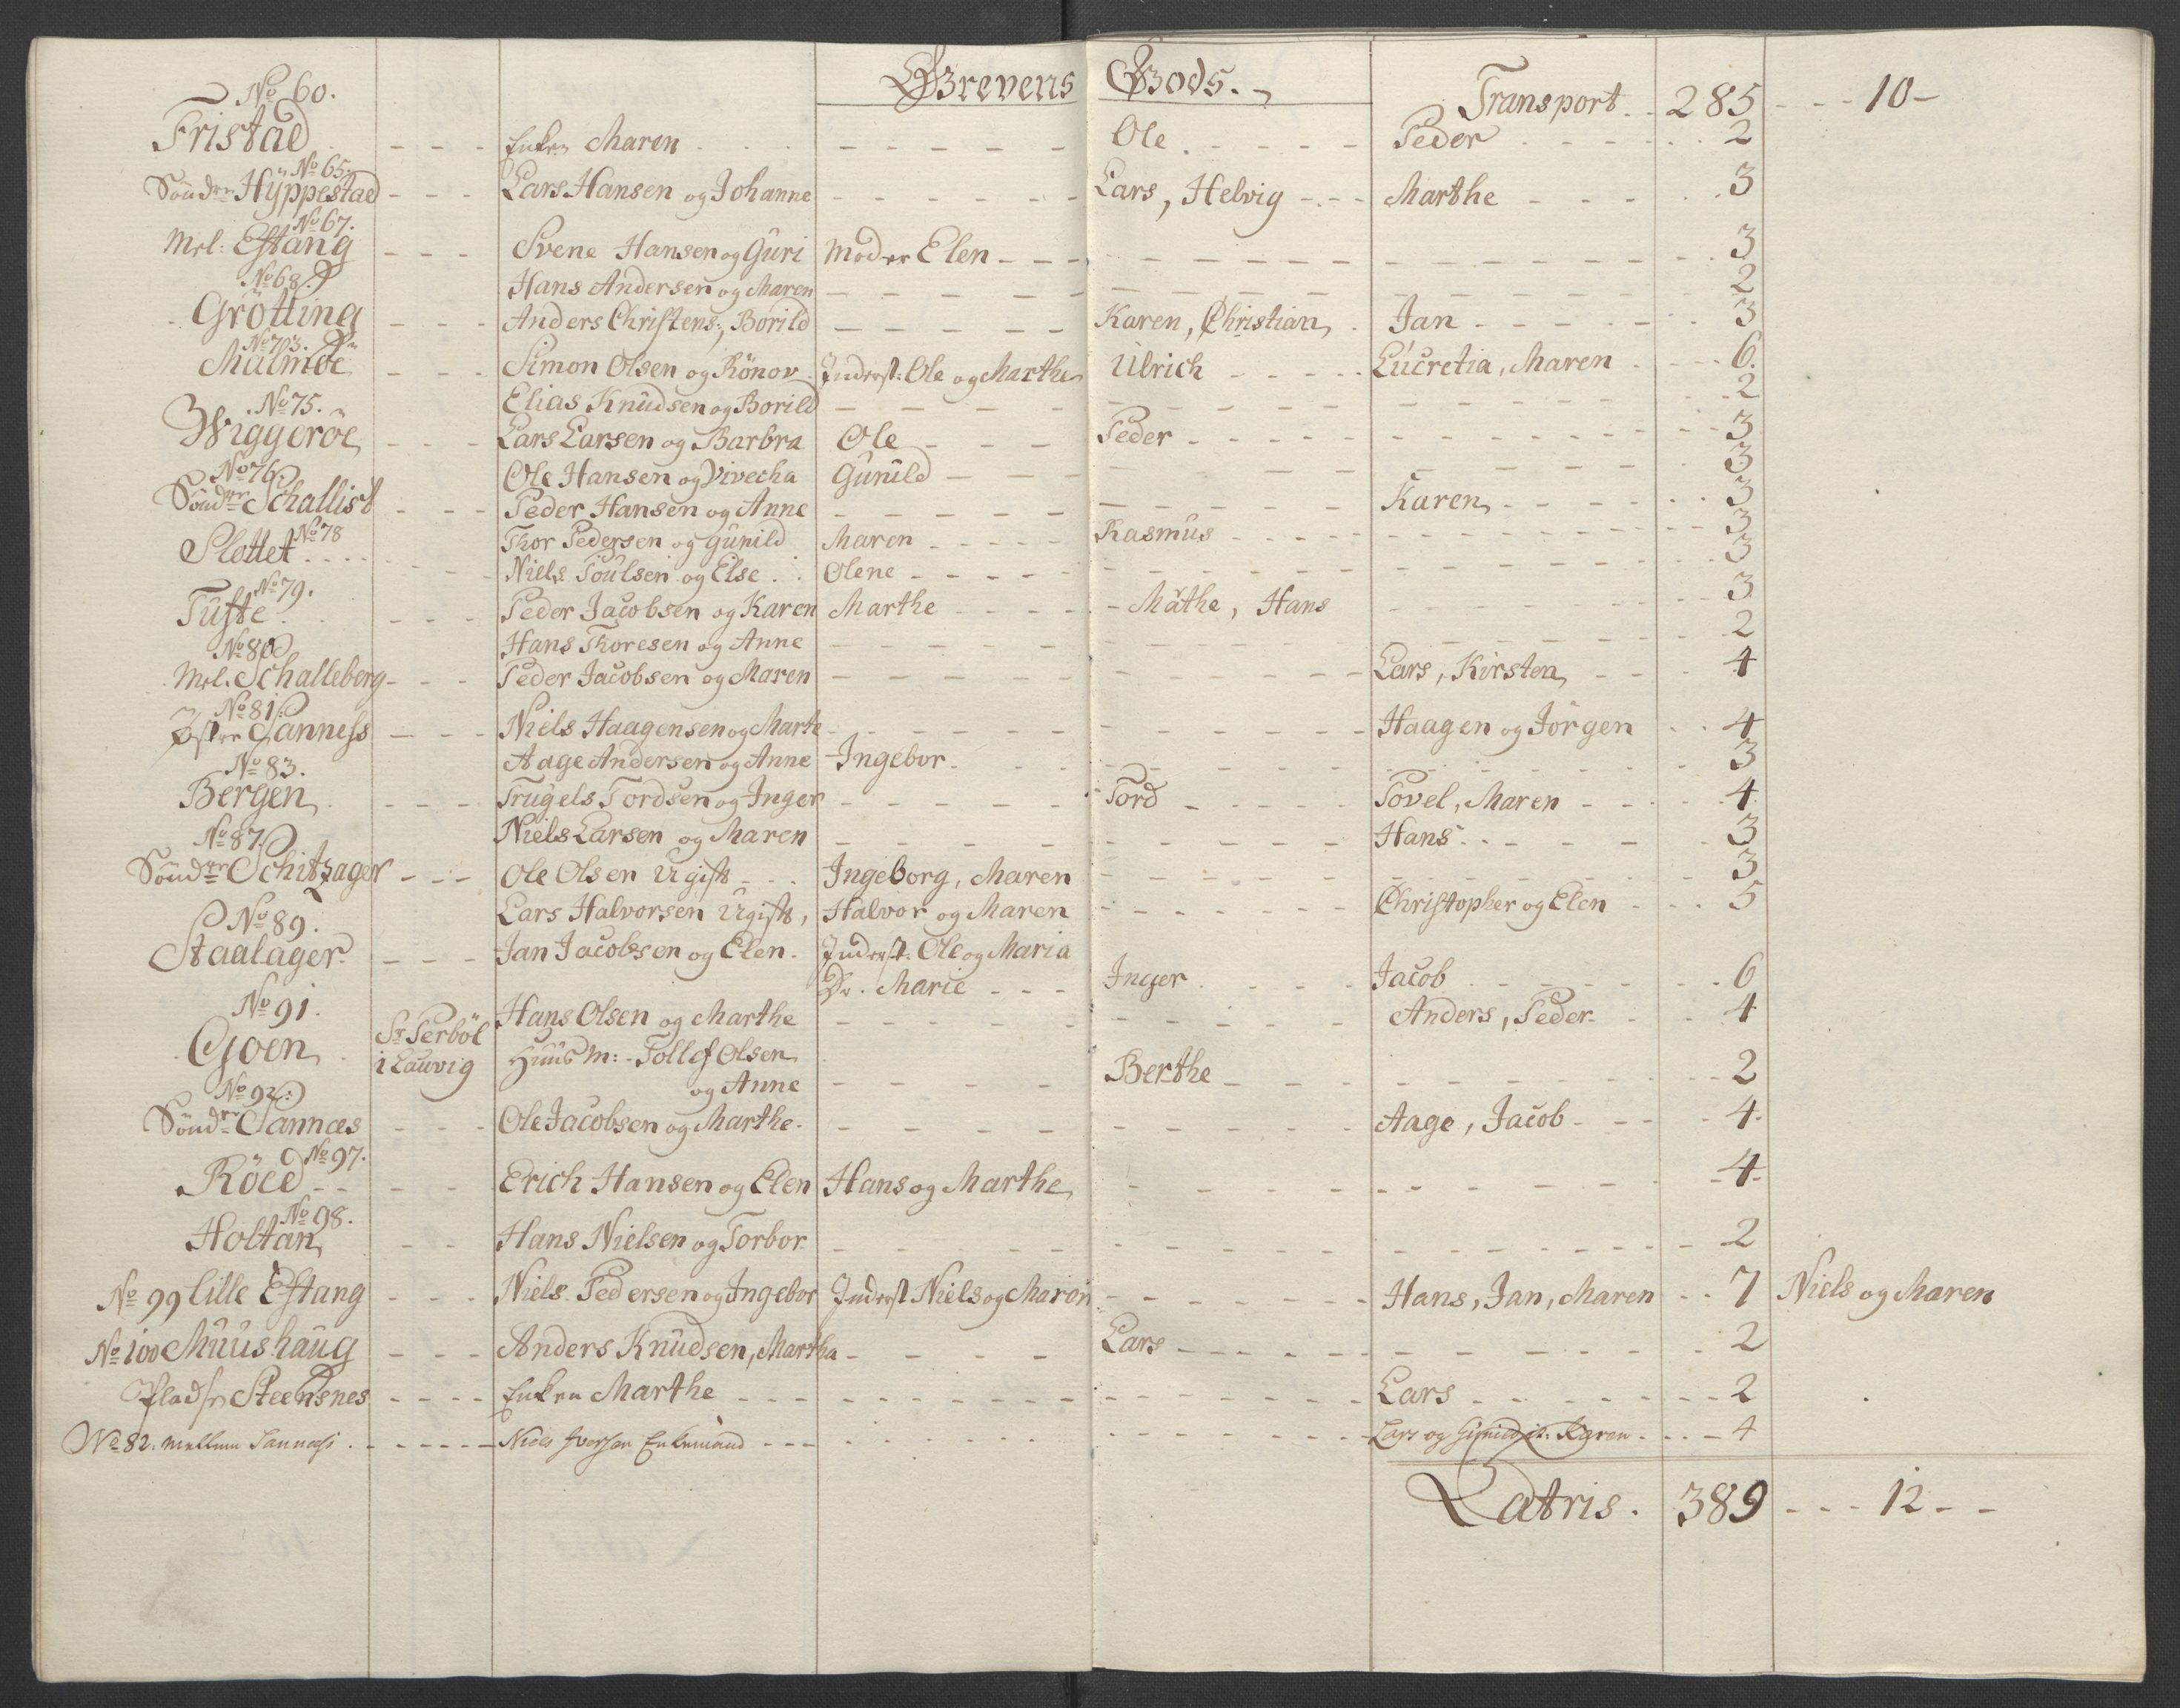 Grevens Gods.
Transport 285 10
No 60.
Fristad Enken Maren Ole Peder 2
No 65
Sönder Hyppestad Lars Hansen og Johanne Lars, Helvig Marthe 3
No 67.
Mel: Eftang Svene Hansen og Guri Moder Elen 3
No 68. Hans Andersen og Maren 2
Grötting Anders Christens:, Borild Karen, Christian, Jan 3
No 73.
Malmöe Simon Olsen og Rönov Inderst: Ole og Marthe Ulrich Lucretia, Maren 6.
No 75. Elias Knudsen og Borild 2
Wiggeröe Lars Larsen og Barbra Ole Peder 3
No 76 Ole Hansen og Vivecha Gunild 3
Sönder Schallist Peder Hansen og Anne Karen 3
No 78 Thor Pedersen og Gunild Maren Rasmus 3
Slottet Niels Poulsen og Else Olene 3
No 79.
Tufte Peder Jacobsen og Karen Marthe Mathe, Hans 3
No 80 Hans Thoresen og Anne 2
Mel. Schalleberg Peder Jacobsen og Maren Lars, Kirsten 4
No 81.
Öster Sanness Niels Haagensen og Marte Haagen og Jörgen 4
No 83. Aage Andersen og Anne Ingebor 3
Bergen Trugels Tordsen og Inger Tord Povel, Maren 4
No 87. Niels Larsen og Maren Hans 3
Sönder Schitzager Ole Olsen Ugift Ingeborg, Maren 3
No 89. Lars Halvorsen Ugift, Halvor og Maren Christopher og Elen 5
Staalager Jan Jacobsen og Elen. Inderst: Ole og Maria
Do. Marie Inger Jacob 6
No 91. Hans Olsen og Marthe Anders, Peder 4
Goen Sr Perböl
i Lauvig Huusm: Tollef Olsen
og Anne Berthe 2
No 92:
Sönder Sannæs Ole Jacobsen og Marthe Aage, Jacob 4
No 97.
Röed Erich Hansen og Elen Hans og Marthe 4
No 98.
Holtan Hans Nielsen og Torbor 2
No 99 Lille Eftang Niels Pedersen og Ingebor Inderst Niels og Maron Hans, Jan, Maren 7 Niels og Maren
No 100 Muushaug Anders Knudsen, Martha Lars 2
Pladsen Steensnes Enken Marthe Lars 2
No 82. Mellem Sannæss Niels Iversen Enkemand Lars og Gunild it. Karen 4
Latris. 389 12